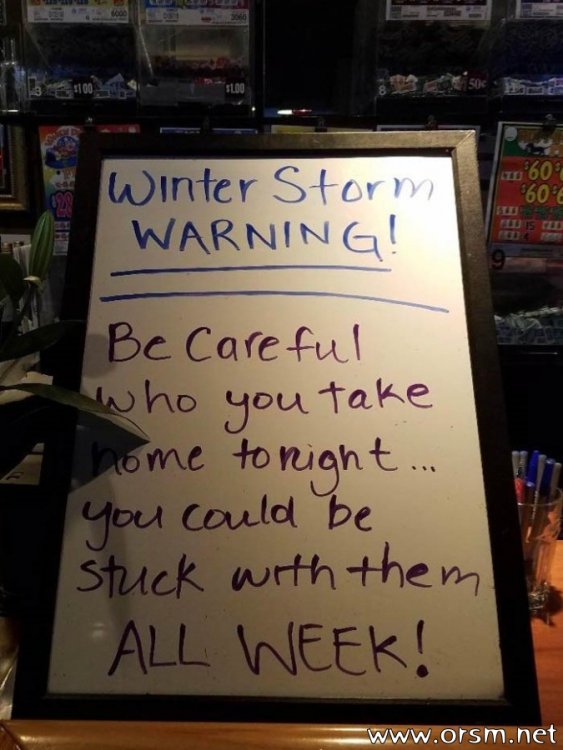 6000
3960
$1.00
$1.00
50¢
$60
$60
9
Winter Storm
WARNING!
Be Careful
who you take
home tonight...
you could be
stuck with them
ALL WEEK!
www.orsm.net